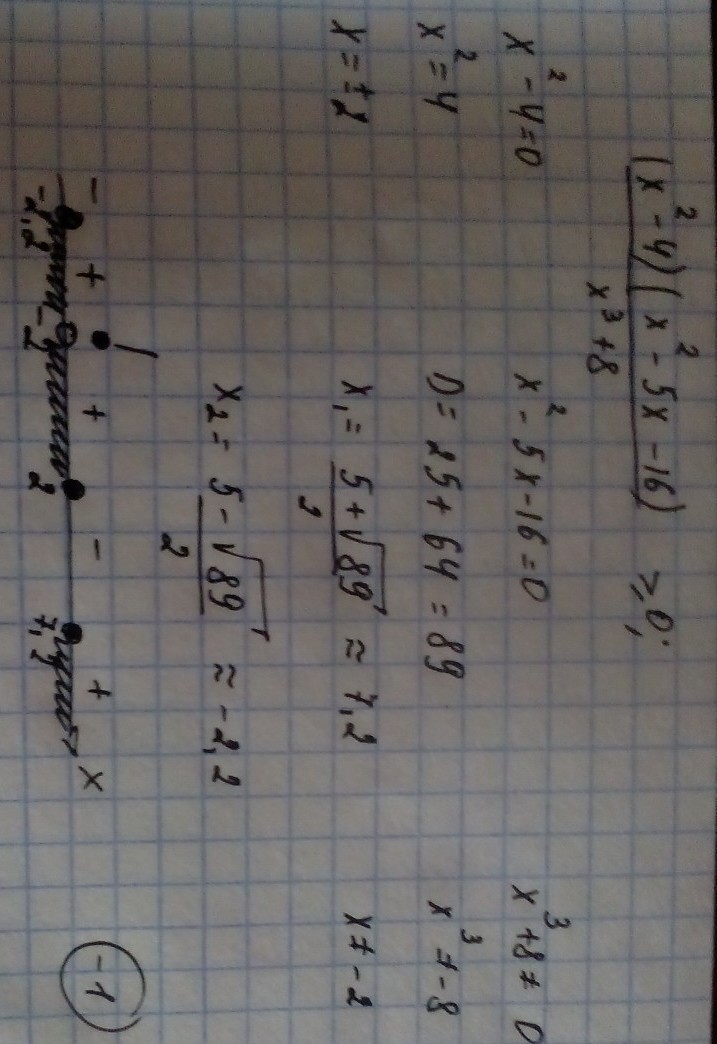 (x² - 4)(x² - 5x - 16) / x³ + 8 ≥ 0;
x² - 4 = 0
x² = 4
x = ±2
x² - 5x - 16 = 0
D = 25 + 64 = 89
x₁ = 5 + √89 / 2 ≈ 7,2
x₂ = 5 - √89 / 2 ≈ -2,2
x³ + 8 ≠ 0
x³ ≠ -8
x ≠ -2
- + + - +
-2,2 -2 2 7,2 x
-1